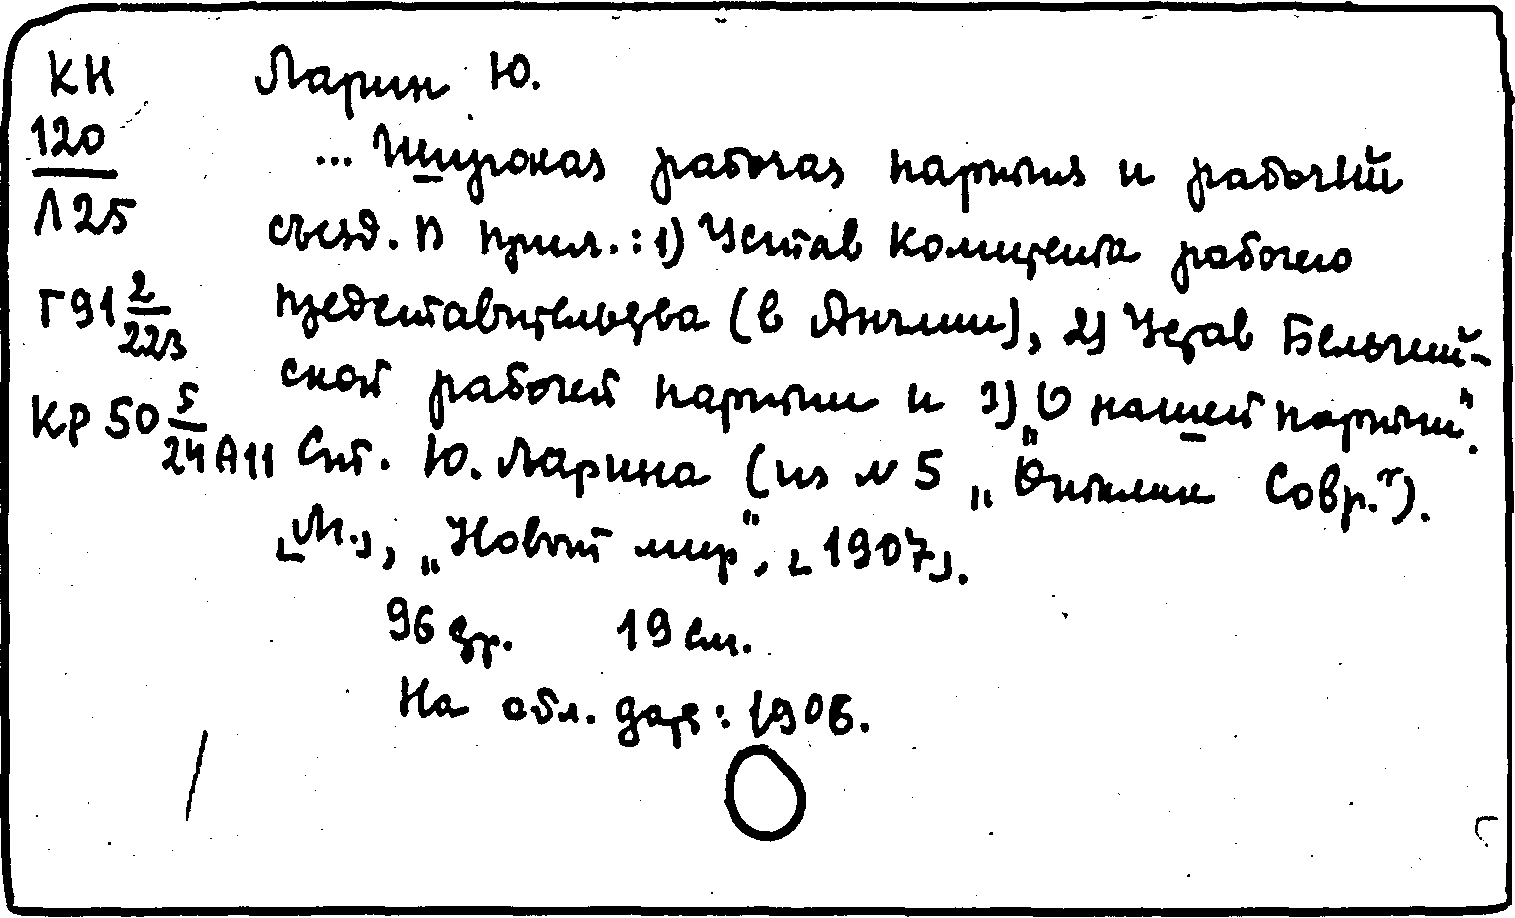 КН
120
Л25
Г91 2/223
КР 50 5/24 А11
Ларин Ю.
... Широкая рабочая партия и рабочий
съезд. В прил.: 1) Устав Комитета рабочего
представительства (в Англии), 2) Устав Бельгий-
ской рабочей партии и 3) „О нашей партии".
Ст. Ю. Ларина (из № 5 „Откликн Совр.").
[М.], „Новый мир", [1907].
96 стр. 19 см.
На обл. дата: 1906.